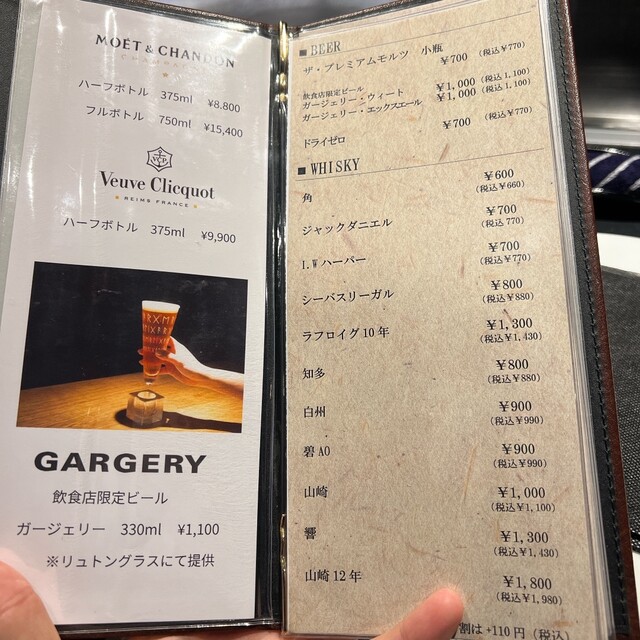 MOËT & CHANDON
CHAMPAGNE
ハーフボトル 375ml ¥8.800
フルボトル 750ml ¥15,400
VCP
Veuve Clicquot
REIMS FRANCE
ハーフボトル 375ml ¥9,900
GARGERY
飲食店限定ビール
ガージェリー 330ml ¥1,100
※リュトングラスにて提供
■ BEER
ザ・プレミアムモルツ 小瓶 ¥700 (税込¥770)
飲食店限定ビール
ガージェリー・ウィート ¥1,000 (税込 1,100)
ガージェリー・エックスエール ¥1,000 (税込 1,100)
ドライゼロ ¥700 (税込¥770)
■ WHISKY
角 ¥600
(税込¥660)
ジャックダニエル ¥700
(税込 770)
I.W ハーパー ¥700
(税込¥770)
シーバスリーガル ¥800
(税込¥880)
ラフロイグ10年 ¥1,300
(税込¥1,430)
知多 ¥800
(税込¥880)
白州 ¥900
(税込¥990)
碧AO ¥900
(税込¥990)
山崎 ¥1,000
(税込¥1,100)
響 ¥1,300
(税込¥1,430)
山崎12年 ¥1,800
(税込¥1,980)
割は+110円(税込